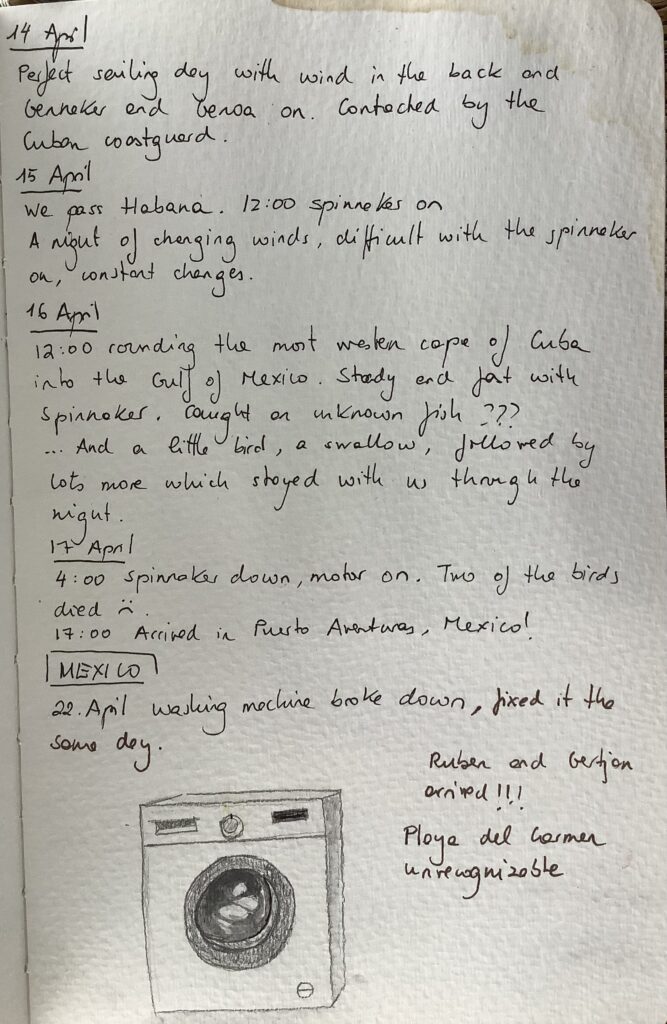 14 April
Perfect sailing day with wind in the back and
Genneker and Genoa on. Contacted by the
Cuban coastguard.
15 April
We pass Habana. 12:00 spinnaker on
A night of changing winds, difficult with the spinnaker
on, constant changes.
16 April
12:00 rounding the most western cape of Cuba
into the Gulf of Mexico. Steady and fast with
spinnaker. Caught an unknown fish ???
... And a little bird, a swallow, followed by
lots more which stayed with us through the
night.
17 April
4:00 spinnaker down, motor on. Two of the birds
died :(.
17:00 Arrived in Puerto Aventuras, Mexico!
MEXICO
22. April washing machine broke down, fixed it the
same day.
Ruben and Gertjan
arrived!!!
Playa del Carmen
unrecognizable